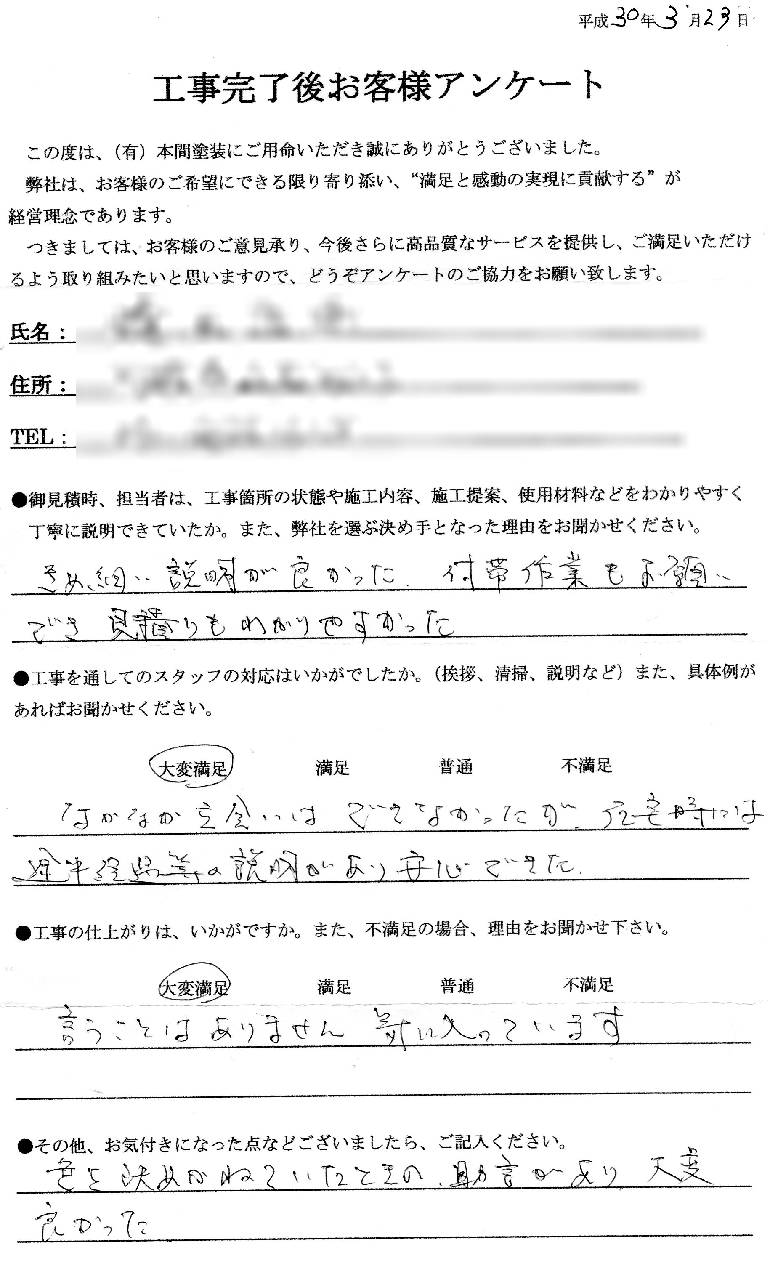 平成30年3月23日
工事完了後お客様アンケート
この度は、（有）本間塗装にご用命いただき誠にありがとうございました。
弊社は、お客様のご希望にできる限り寄り添い、“満足と感動の実現に貢献する”が
経営理念であります。
つきましては、お客様のご意見承り、今後さらに高品質なサービスを提供し、ご満足いただけ
るよう取り組みたいと思いますので、どうぞアンケートのご協力をお願い致します。
氏名：
住所：
TEL：
●御見積時、担当者は、工事箇所の状態や施工内容、施工提案、使用材料などをわかりやすく
丁寧に説明できていたか。また、弊社を選ぶ決め手となった理由をお聞かせください。
きめ細い説明が良かった．付帯作業もお願い
でき見積りもわかりやすかった
●工事を通してのスタッフの対応はいかがでしたか。（挨拶、清掃、説明など）また、具体例が
あればお聞かせください。
大変満足 満足 普通 不満足
なかなか立会いはできなかったが、在宅時には
途中経過等の説明があり安心できた．
●工事の仕上がりは、いかがですか。また、不満足の場合、理由をお聞かせ下さい。
大変満足 満足 普通 不満足
言うことはありません 気に入っています
●その他、お気付きになった点などございましたら、ご記入ください。
色を決めかねていたときの、助言があり 大変
良かった